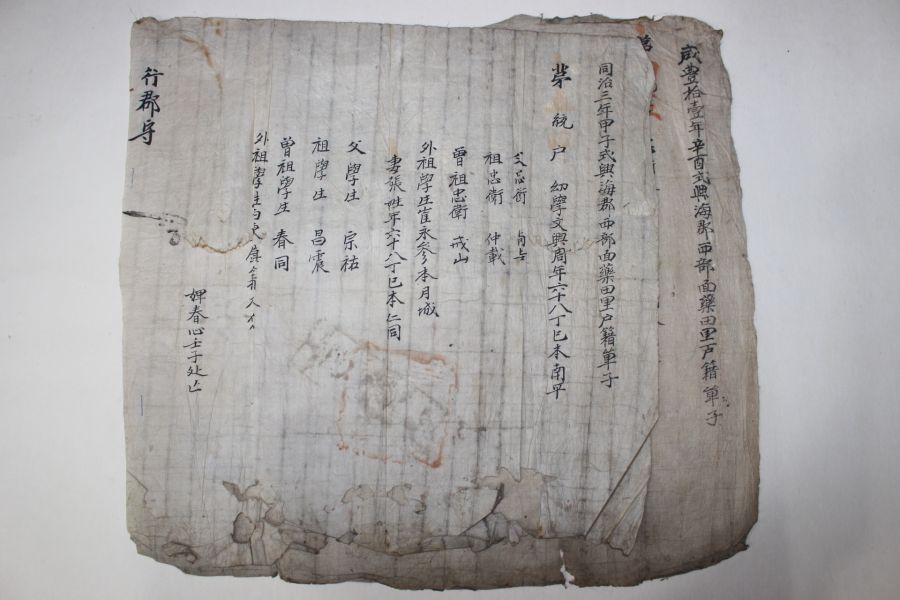 咸豊拾壹年辛酉式興海郡西部面藥田里戶籍單子
同治三年甲子式興海郡西部面藥田里戶籍單子
第 統 戶 幼學文興周年六十八丁巳本南平
父忠衛
祖忠衛 仲載
曾祖忠衛 戒山
外祖學生崔永參本月城
妻張姓年六十八丁巳本仁同
父學生 宗祐
祖學生 昌震
曾祖學生 春同
外祖學生
婢春心壬子处亡
行郡守